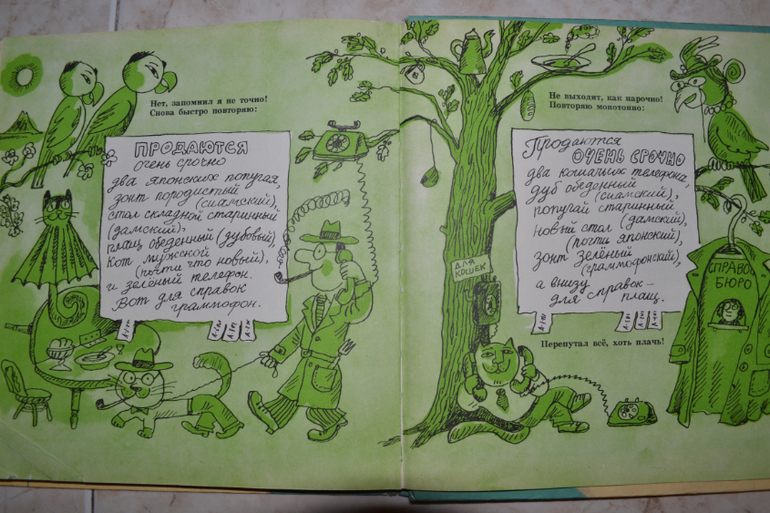 Нет, запомнил я не точно!
Снова быстро повторяю:
ПРОДАЮТСЯ
очень срочно
два японских попугая,
зонт породистый
(сиамский),
стол складной старинный
(дамский),
плащ обеденный (зубовый),
Кот мужской
(почти что новый),
и зелёный телефон.
Вот для справок
граммофон.
Не выходит, как нарочно!
Повторяю монотонно:
Продаются
ОЧЕНЬ СРОЧНО
два кошачьих телефона,
дуб обеденный
(сиамский),
попугай старинный
(дамский),
новый стол
(почти японский),
зонт зелёный
(граммофонский),
а внизу
для справок —
плащ.
ДЛЯ
КОШЕК
СПРАВОЧ
БЮРО
Перепутал всё, хоть плачь!